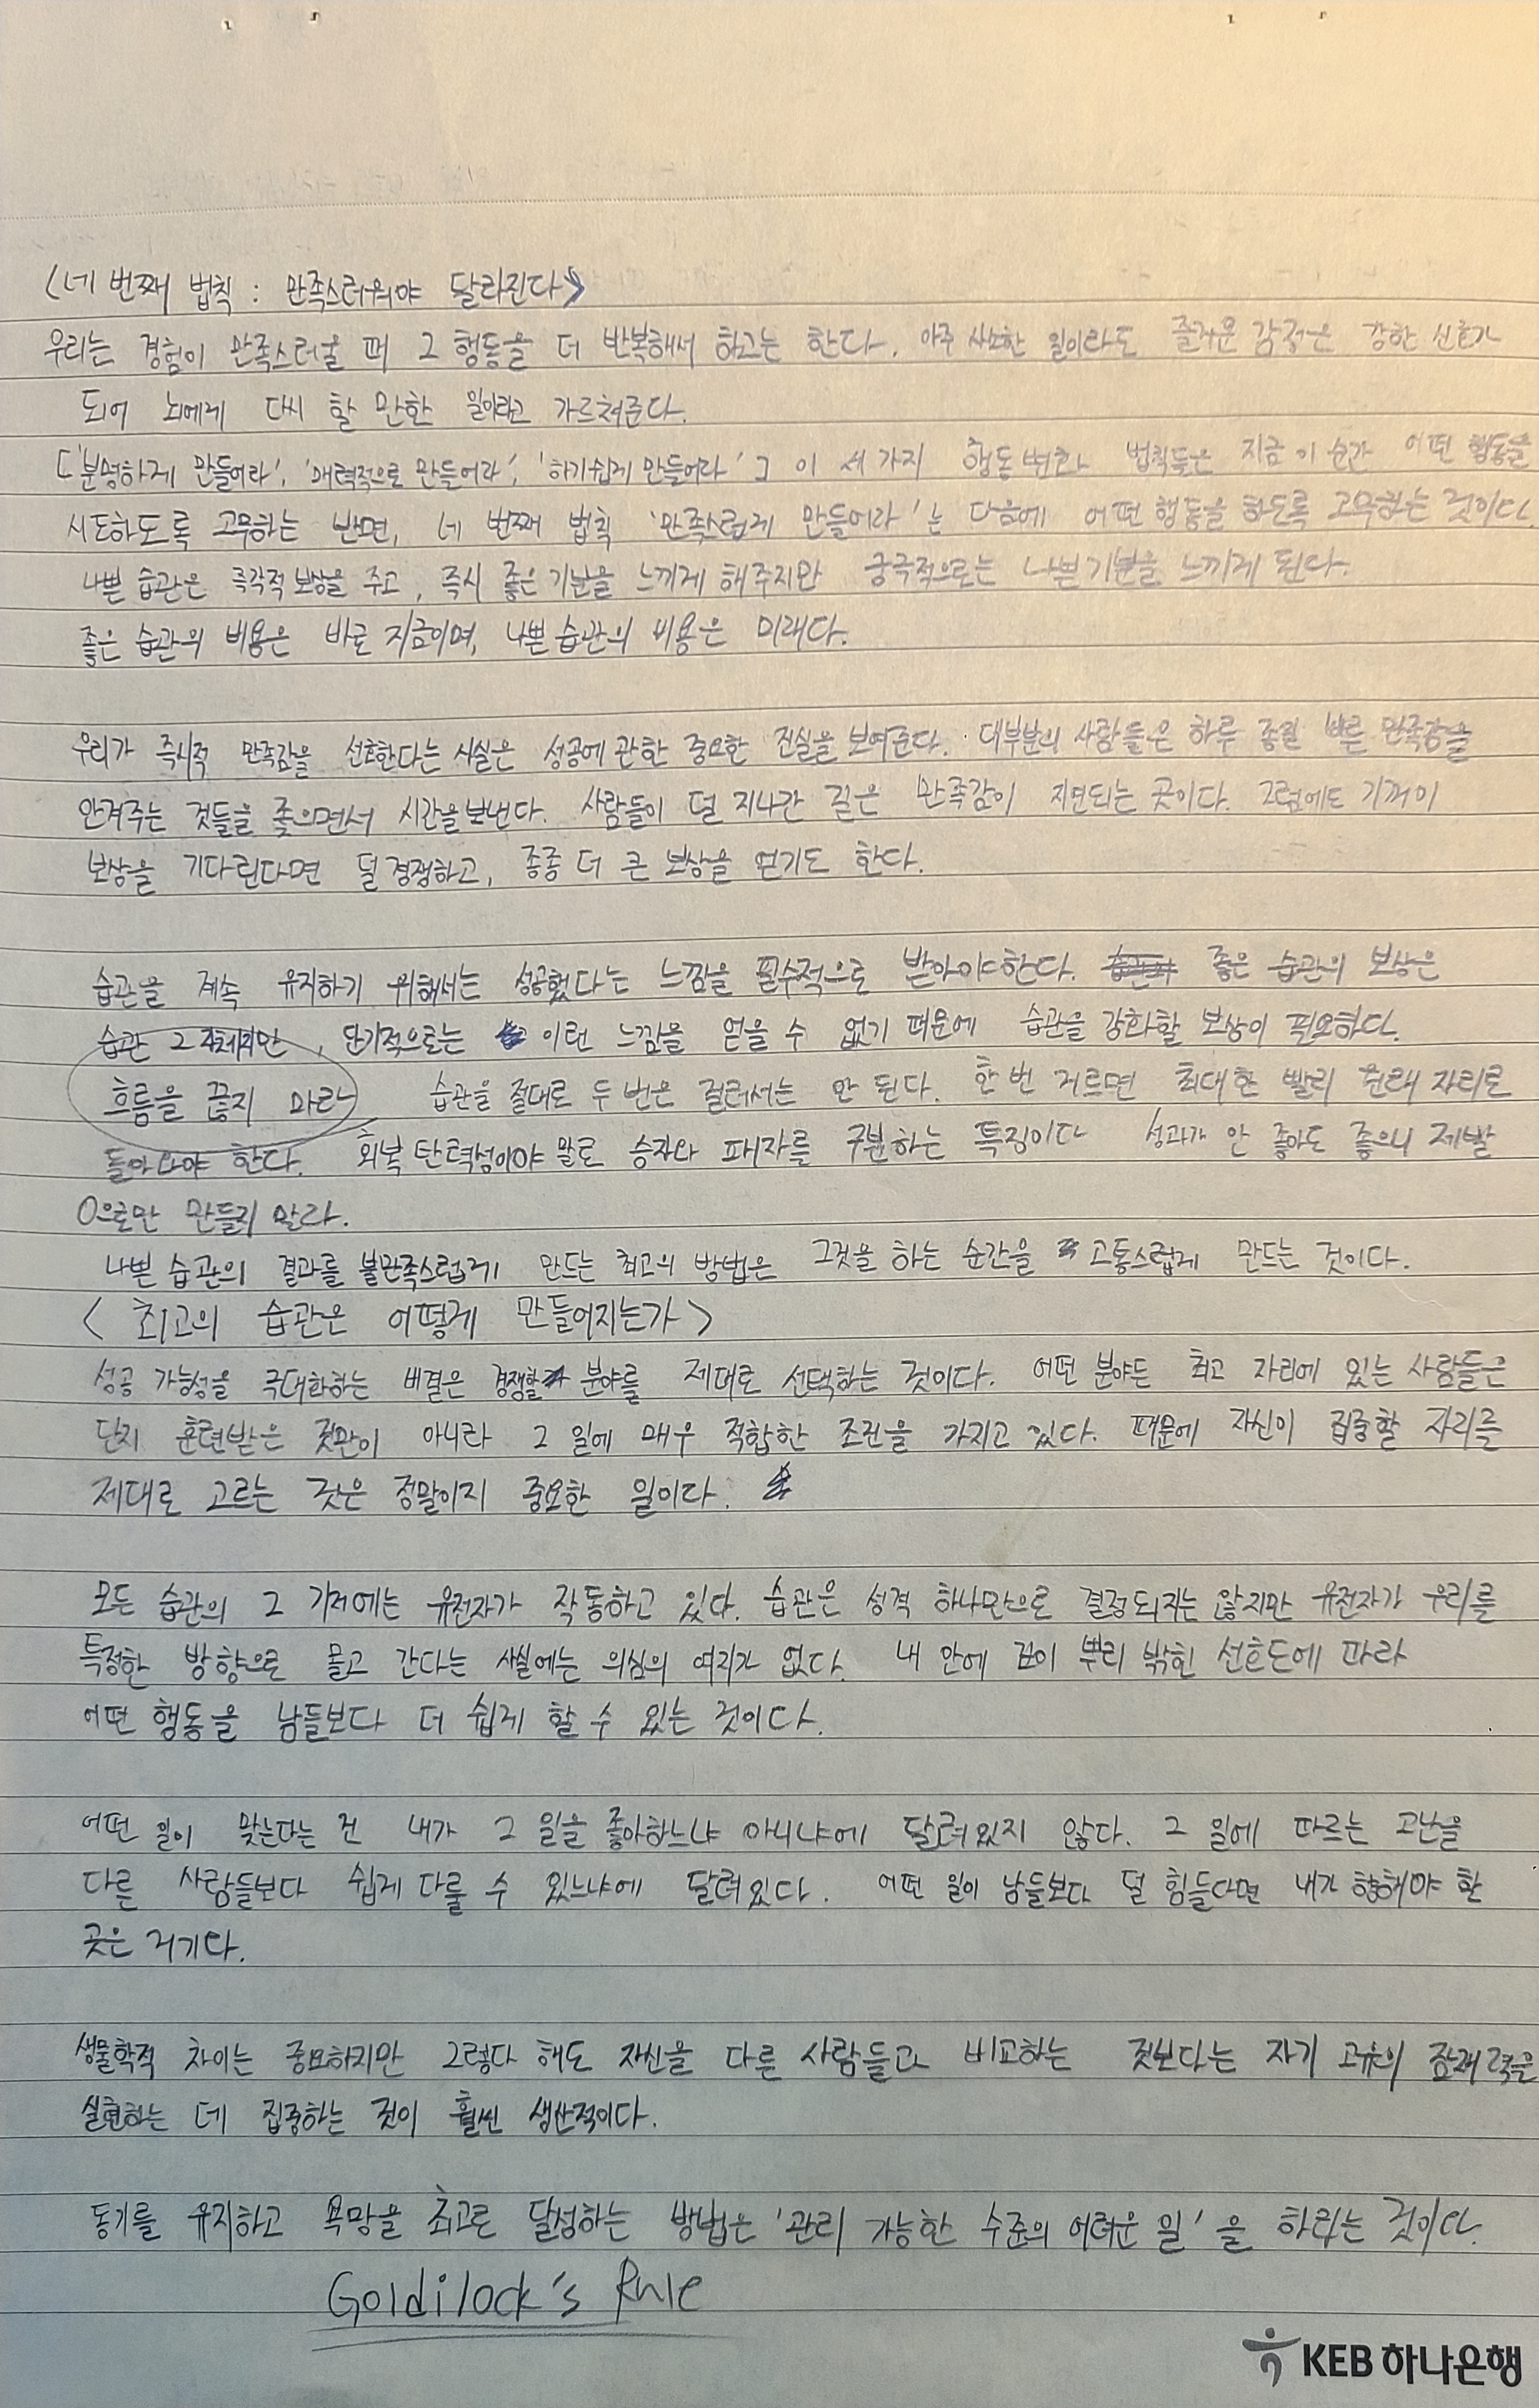 <네 번째 법칙 : 만족스러워야 달라진다>
우리는 경험이 만족스러울 때 그 행동을 더 반복해서 하고는 한다. 아주 사소한 일이라도 즐거운 감정은 강한 신호가
되어 뇌에게 다시 할 만한 일이라고 가르쳐준다.
「'분명하게 만들어라', '매력적으로 만들어라', '하기쉽게 만들어라'」 이 세 가지 행동 변화 법칙들은 지금 이 순간 어떤 행동을
시도하도록 고무하는 반면, 네 번째 법칙 '만족스럽게 만들어라'는 다음에 어떤 행동을 하도록 고무하는 것이다
나쁜 습관은 즉각적 보상을 주고, 즉시 좋은 기분을 느끼게 해주지만 궁극적으로는 나쁜 기분을 느끼게 된다.
좋은 습관의 비용은 바로 지금이며, 나쁜 습관의 비용은 미래다.
우리가 즉시적 만족감을 선호한다는 사실은 성공에 관한 중요한 진실을 보여준다. 대부분의 사람들은 하루 종일 빠른 만족감을
안겨주는 것들을 좇으면서 시간을 보낸다. 사람들이 덜 지나간 길은 만족감이 지연되는 곳이다. 그럼에도 기꺼이
보상을 기다린다면 덜 경쟁하고, 종종 더 큰 보상을 얻기도 한다.
습관을 계속 유지하기 위해서는 성공했다는 느낌을 필수적으로 받아야한다. 좋은 습관의 보상은
습관 그 자체지만, 단기적으로는 이런 느낌을 얻을 수 없기 때문에 습관을 강화할 보상이 필요하다.
흐름을 끊지 마라 습관을 절대로 두 번은 걸러서는 안 된다. 한 번 거르면 최대한 빨리 원래 자리로
돌아와야 한다. 회복 탄력성이야 말로 승자와 패자를 구분하는 특징이다 성과가 안 좋아도 좋으니 제발
0으로만 만들지 말라.
나쁜 습관의 결과를 불만족스럽게 만드는 최고의 방법은 그것을 하는 순간을 고통스럽게 만드는 것이다.
< 최고의 습관은 어떻게 만들어지는가 >
성공 가능성을 극대화하는 비결은 경쟁할 분야를 제대로 선택하는 것이다. 어떤 분야든 최고 자리에 있는 사람들은
단지 훈련받은 것만이 아니라 그 일에 매우 적합한 조건을 가지고 있다. 때문에 자신이 집중할 자리를
제대로 고르는 것은 정말이지 중요한 일이다.
모든 습관의 그 기저에는 유전자가 작동하고 있다. 습관은 성격 하나만으로 결정되지는 않지만 유전자가 우리를
특정한 방향으로 몰고 간다는 사실에는 의심의 여지가 없다. 내 안에 깊이 뿌리 밖힌 선호도에 따라
어떤 행동을 남들보다 더 쉽게 할 수 있는 것이다.
어떤 일이 맞는다는 건 내가 그 일을 좋아하느냐 아니냐에 달려있지 않다. 그 일에 따르는 고난을
다른 사람들보다 쉽게 다룰 수 있느냐에 달려있다. 어떤 일이 남들보다 덜 힘들다면 내가 향해야 할
곳은 거기다.
생물학적 차이는 중요하지만 그렇다 해도 자신을 다른 사람들과 비교하는 것보다는 자기 고유의 잠재력을
실현하는 데 집중하는 것이 훨씬 생산적이다.
동기를 유지하고 욕망을 최고로 달성하는 방법은 '관리 가능한 수준의 어려운 일'을 하라는 것이다.
Goldilock's Rule
KEB 하나은행